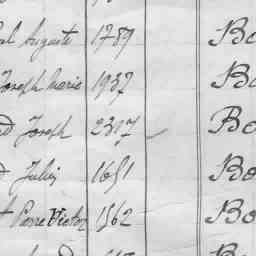 Auguste 1789 Bo
Joseph Marie 1937 Bo
Joseph 2317 Bo
Julien 1651 Bo
Pierre Victor 1562 Bo